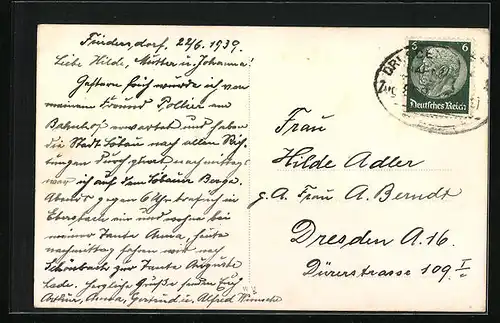 Friedersdorf. 22/6. 1939.
Liebe Hilde, Mutter u. Johanna!
Gestern früh wurde ich von
meinem Freund am
Bahnhof erwartet und haben
die Stadt Löbau nach allen Rich-
tungen durchquert, nachmittags
war ich auf dem Löbauer Berge.
Abends gegen 6 Uhr traf ich in
Ebersbach ein und wohne bei
meiner Tante Anna, heute
nachmittag fahren wir nach
Schönbach zur Tante Auguste
Lade. Herzliche Grüße senden Euch
Arthur, Anna, Gertrud u. Alfred Wünsche
5 6
Deutsches Reich
Frau
Hilde Adler
z. A. Frau A. Berndt
Dresden A. 16.
Dürerstrasse 109 I